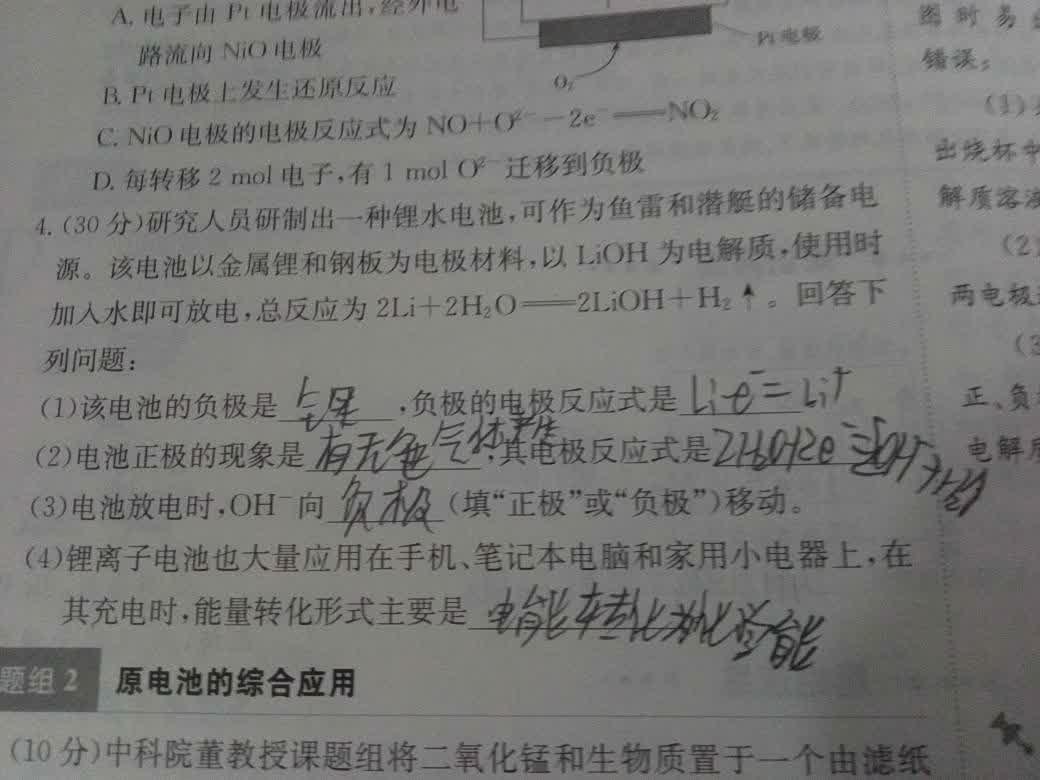 A. 电子由 Pt 电极流出,经外电
路流向 NiO 电极
B. Pt 电极上发生还原反应
C. NiO 电极的电极反应式为 NO+O²⁻-2e⁻══NO₂
D. 每转移 2 mol 电子,有 1 mol O²⁻ 迁移到负极
Pt 电极
O₂
4. (30 分)研究人员研制出一种锂水电池,可作为鱼雷和潜艇的储备电
源。该电池以金属锂和钢板为电极材料,以 LiOH 为电解质,使用时
加入水即可放电,总反应为 2Li+2H₂O══2LiOH+H₂↑。回答下
列问题:
(1)该电池的负极是 锂 ,负极的电极反应式是 Li-e⁻=Li⁺
(2)电池正极的现象是 有无色气体产生 ,其电极反应式是 2H₂O+2e⁻=2OH⁻+H₂
(3)电池放电时,OH⁻ 向 负极 (填“正极”或“负极”)移动。
(4)锂离子电池也大量应用在手机、笔记本电脑和家用小电器上,在
其充电时,能量转化形式主要是 电能转化为化学能
题组 2 原电池的综合应用
(10 分)中科院董教授课题组将二氧化锰和生物质置于一个由滤纸
图时易
错误:
(1)
出烧杯中
解质溶液
(2)
两电极
(3
正、负
电解质